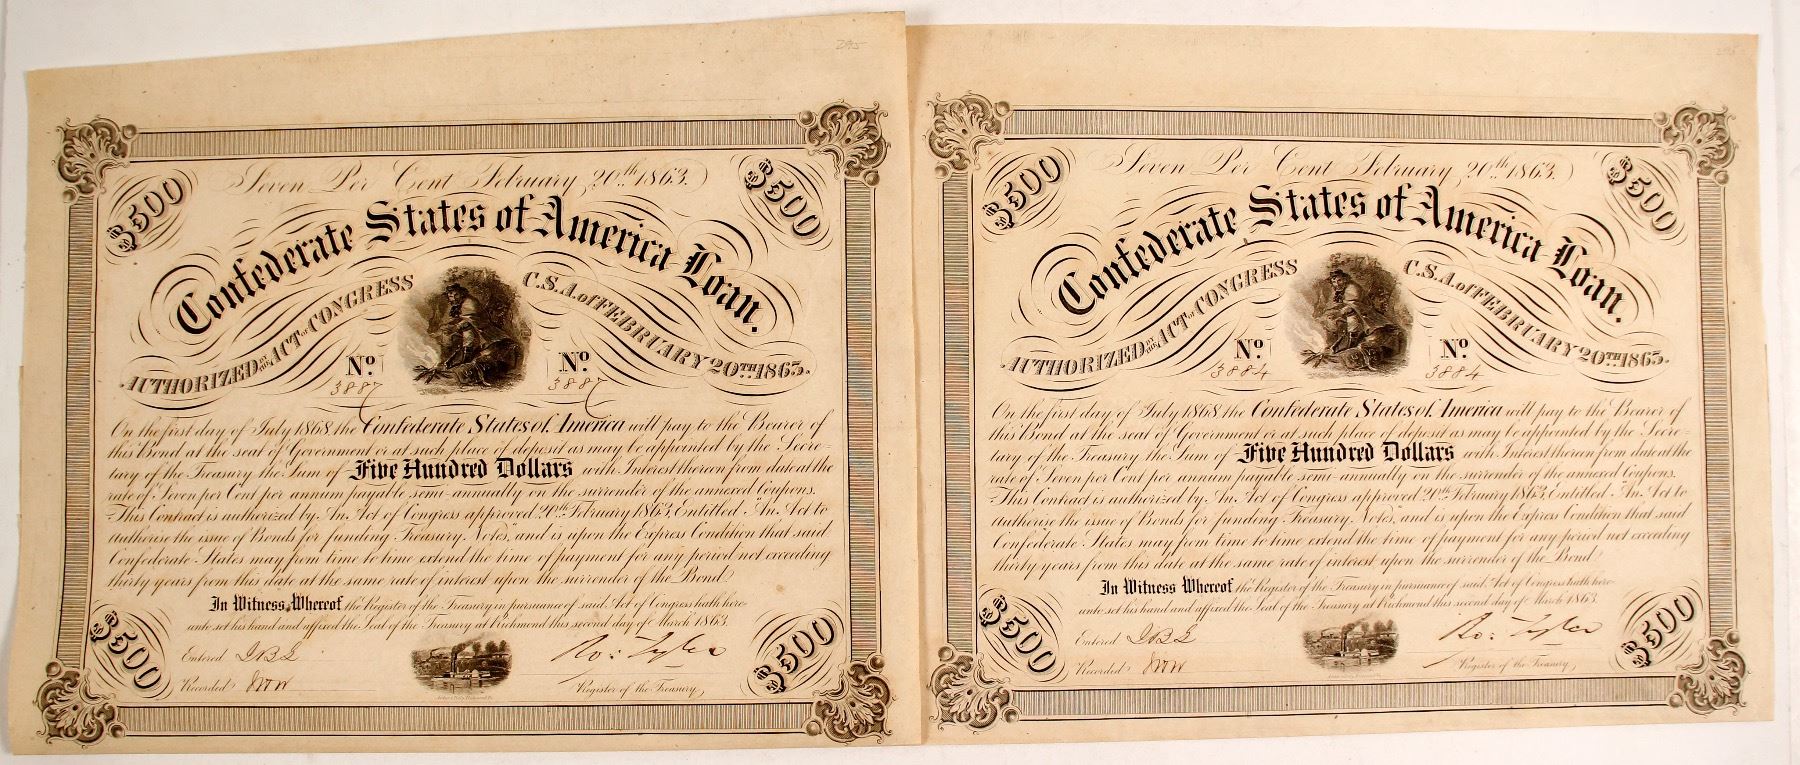 $500
Seven Per Cent February 20th 1863.
$500
Confederate States of America Loan.
AUTHORIZED BY THE ACT OF CONGRESS C.S.A. of FEBRUARY 20TH 1863.
No. No.
3887 3887
On the first day of July 1868 the Confederate States of America will pay to the Bearer of
this Bond at the seat of Government or at such place of deposit as may be appointed by the Secre-
tary of the Treasury the Sum of Five Hundred Dollars with Interest thereon from date at the
rate of Seven per Cent per annum payable semi-annually on the surrender of the annexed Coupons.
This Contract is authorized by An Act of Congress approved 20th February 1863, Entitled "An Act to
authorise the issue of Bonds for funding Treasury Notes", and is upon the Express Condition that said
Confederate States may from time to time extend the time of payment for any period not exceeding
thirty years from this date at the same rate of interest upon the surrender of the Bond
In Witness Whereof the Register of the Treasury in pursuance of said Act of Congress hath here-
unto set his hand and affixed the Seal of the Treasury at Richmond this second day of March 1863.
$500
Entered JBL
Ro: Tyler
$500
Recorded JWW
Register of the Treasury,
$500
Seven Per Cent February 20th 1863.
$500
Confederate States of America Loan.
AUTHORIZED BY THE ACT OF CONGRESS C.S.A. of FEBRUARY 20TH 1863.
No. No.
3884 3884
On the first day of July 1868 the Confederate States of America will pay to the Bearer of
this Bond at the seat of Government or at such place of deposit as may be appointed by the Secre-
tary of the Treasury the Sum of Five Hundred Dollars with Interest thereon from date at the
rate of Seven per Cent per annum payable semi-annually on the surrender of the annexed Coupons.
This Contract is authorized by An Act of Congress approved 20th February 1863, Entitled "An Act to
authorise the issue of Bonds for funding Treasury Notes", and is upon the Express Condition that said
Confederate States may from time to time extend the time of payment for any period not exceeding
thirty years from this date at the same rate of interest upon the surrender of the Bond
In Witness Whereof the Register of the Treasury in pursuance of said Act of Congress hath here-
unto set his hand and affixed the Seal of the Treasury at Richmond this second day of March 1863.
$500
Entered JBL
Ro: Tyler
$500
Recorded JWW
Register of the Treasury,